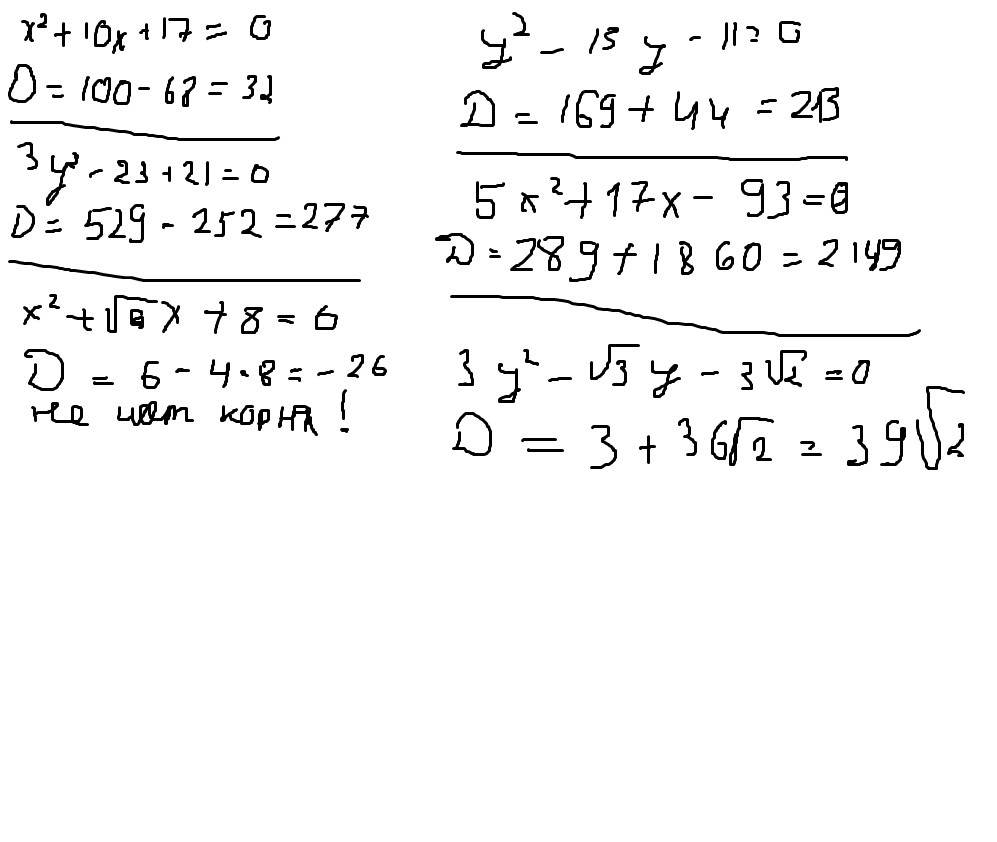 x² + 10x + 17 = 0
D = 100 - 68 = 32
3y² - 23 + 21 = 0
D = 529 - 252 = 277
x² + √6 x + 8 = 0
D = 6 - 4·8 = -26
не корня!
y² - 13y - 11 = 0
D = 169 + 44 = 213
5x² + 17x - 93 = 0
D = 289 + 1860 = 2149
3y² - √3 y - 3√2 = 0
D = 3 + 36√2 = 39√2